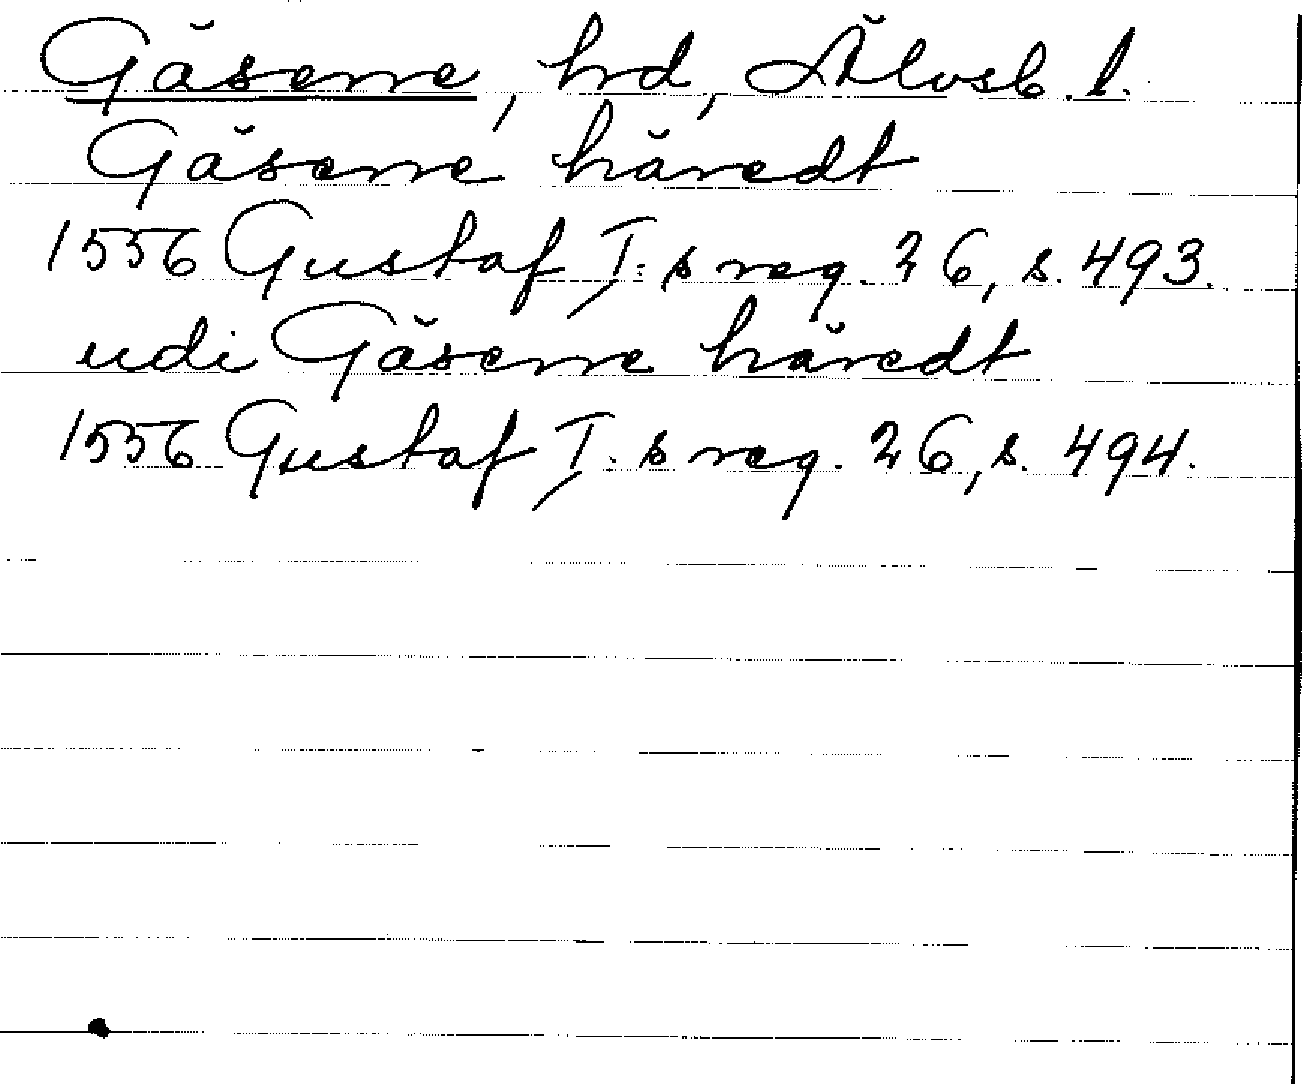 Gäsene, hd, Älvsb. l.
Gäsene häredt
1556 Gustaf I:s reg. 26, s. 493.
udi Gäsene häredt
1556 Gustaf I:s reg. 26, s. 494.